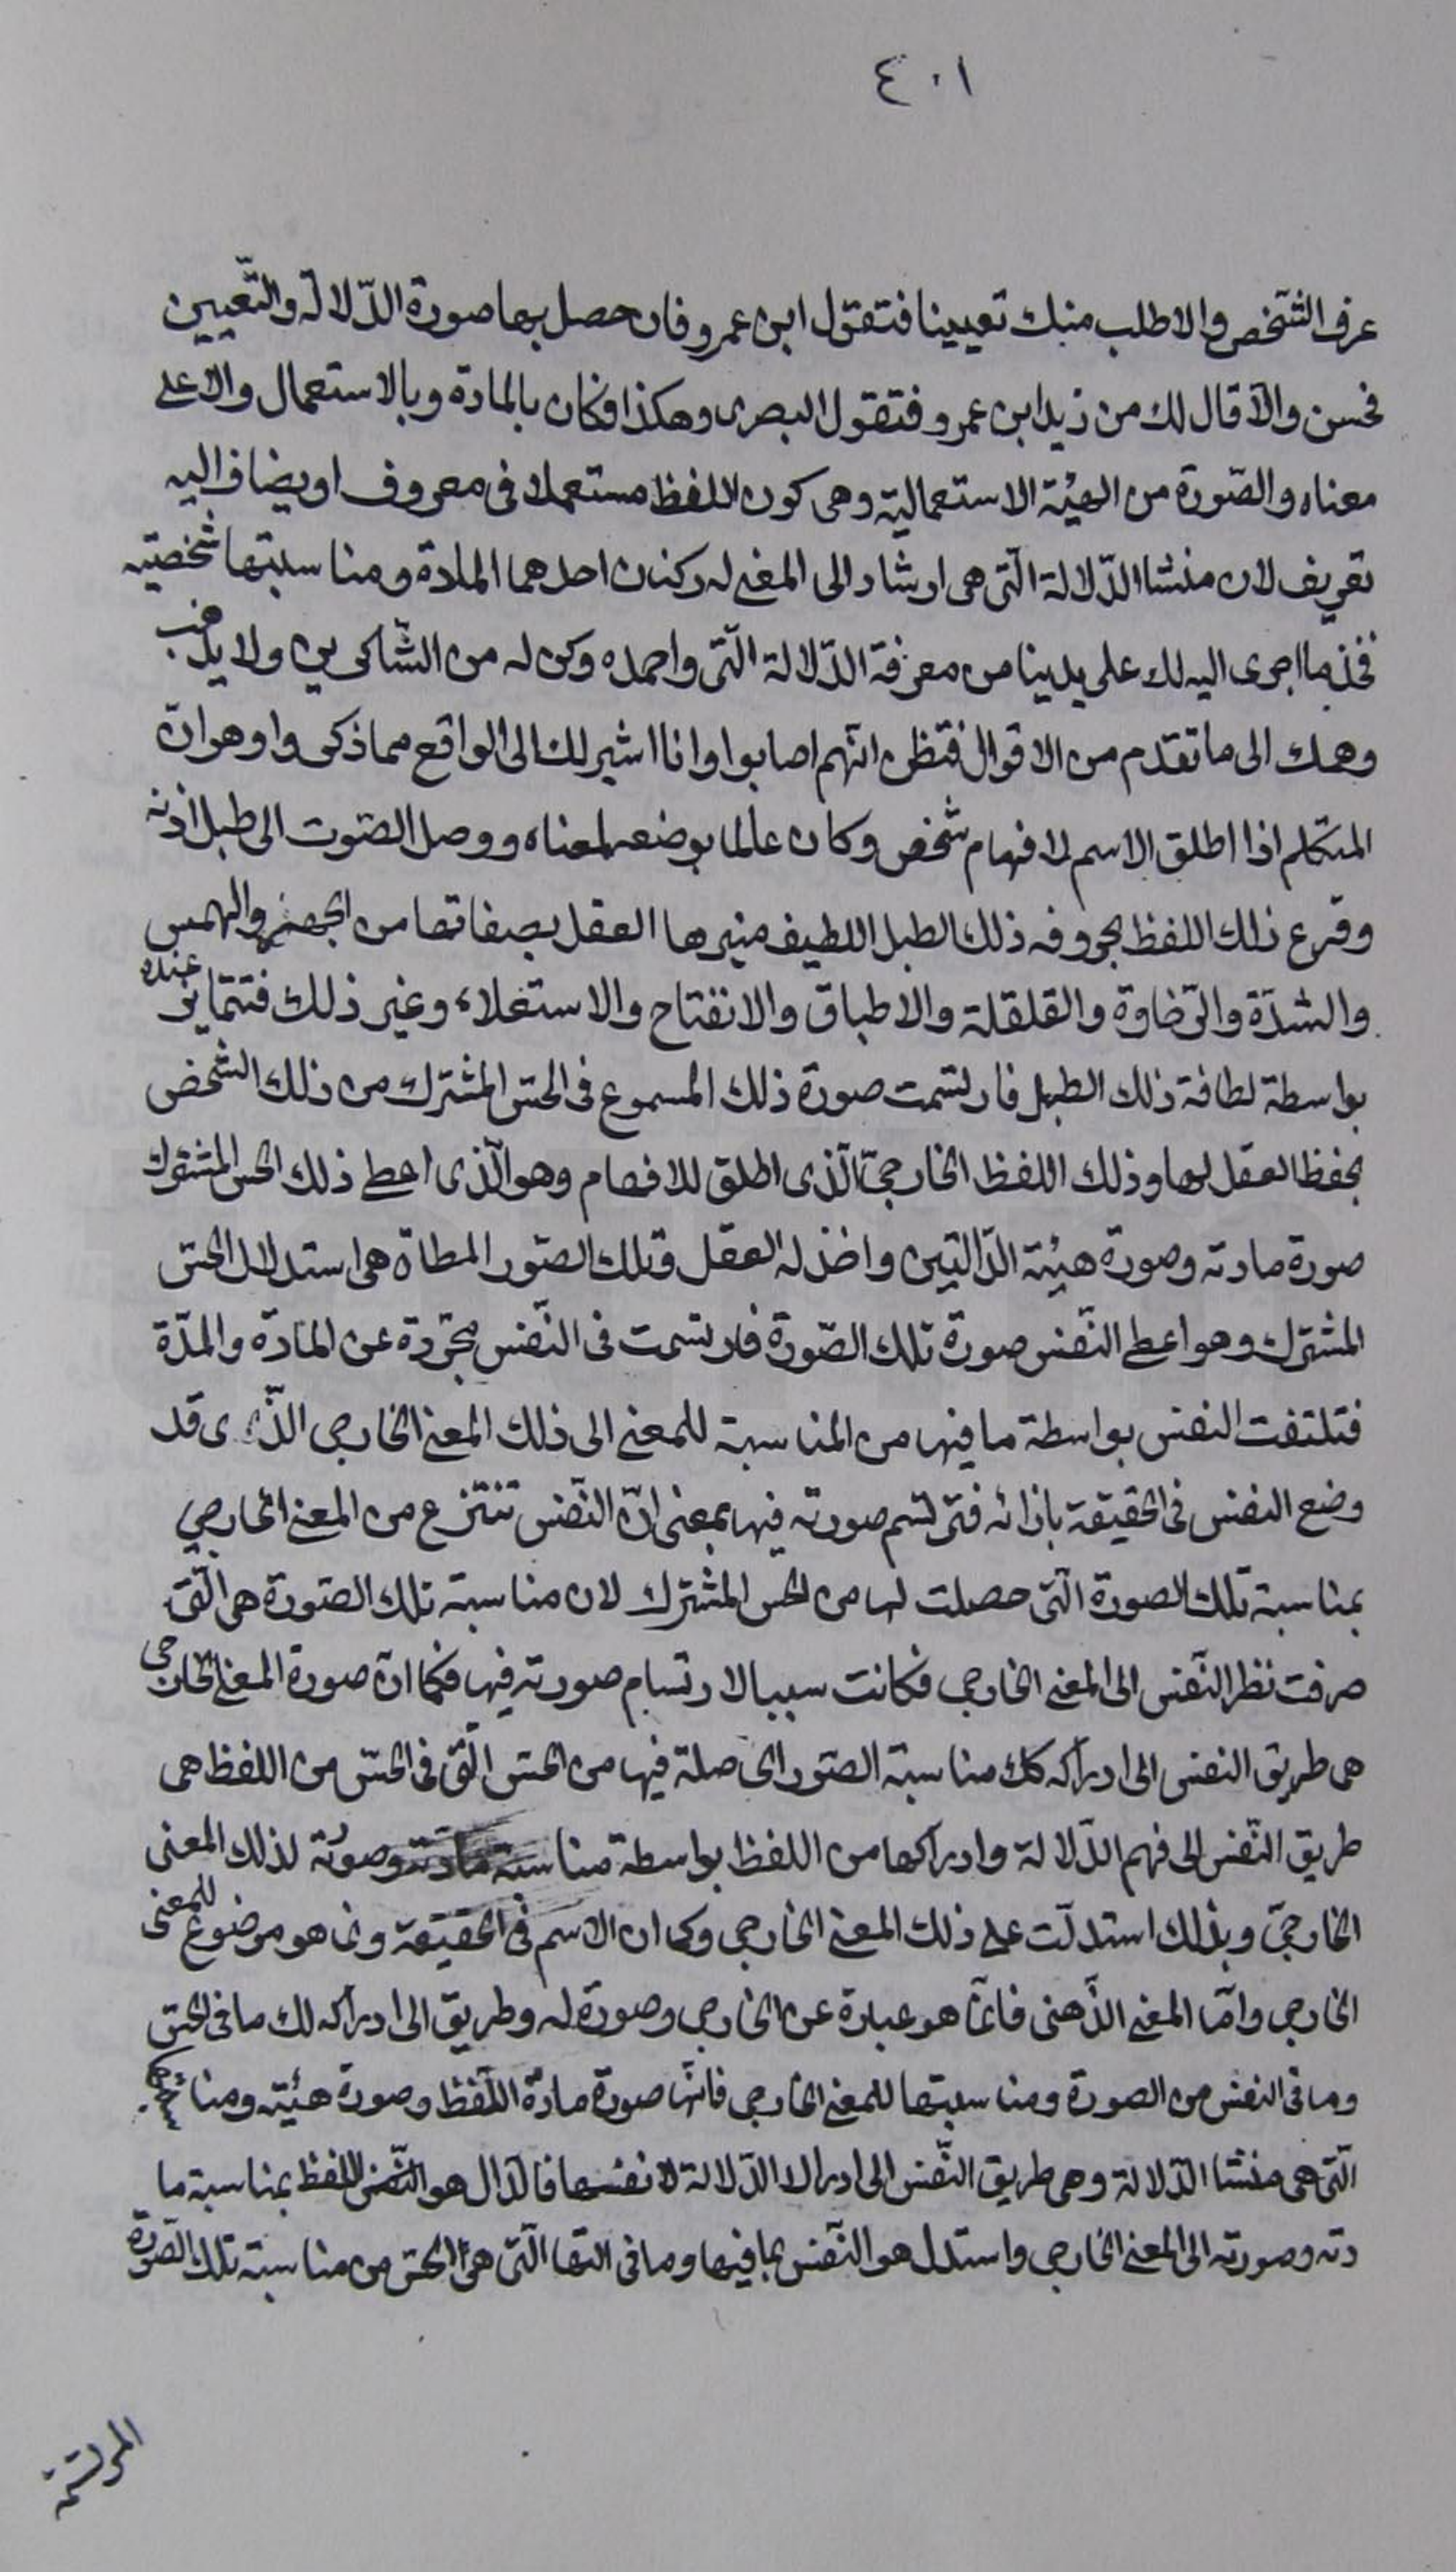 ٤٠١
عرف الشّخص والا طلب منك تعيينا فتقول ابن عمرو فان حصل بها صورة الدّلالة والتّعيين
فحسن والّا قال لك من زيد ابن عمرو فتقول البصرى وهكذا فكان بالمادة وبالاستعمال والا على
معناه والصّورة من الهيئة الاستعمالية وهى كون اللفظ مستعملا فى معروف او يضاف اليه
تعريف لان منشا الدّلالة الّتى هى ارشاد الى المعنى له ركنان احدهما المادة ومناسبتها شخصيّه
فخذ ما اجرى اليه لك على يدينا من معرفة الدّلالة الّتى واحمده وكن له من الشّاكرين ولا يذهب
وهمك الى ما تقدم من الاقوال فتظن انّهم اصابوا وانا اشير لك الى الواقع مما ذكروا وهو انّ
المتكلم اذا اطلق الاسم لافهام شخص وكان عالما بوضعه لمعناه ووصل الصّوت الى طبل اذنه
وقرع ذلك اللفظ بحروفه ذلك الطبل اللطيف ميزها العقل بصفاتها من الجهر والهمس
والشدّة والرّخاوة والقلقلة والاطباق والانفتاح والاستعلاء وغير ذلك فتتمايز عنده
بواسطة لطافة ذلك الطبل فارتسمت صورة ذلك المسموع فى الحسّ المشترك من ذلك الشخص
بحفظ العقل لها وذلك اللفظ الخارجىّ الّذى اطلق للافهام وهو الّذى اعطى ذلك الحس المشترك
صورة مادته وصورة هيئته الدّالتين واخذ له العقل وتلك الصّور المعطاة هى استدلال الحسّ
المشترك وهو اعطى النّفس صورة تلك الصّورة فارتسمت فى النّفس مجرّدة عن المادّة والمدّة
فتلتفت النفس بواسطة ما فيها من المناسبة للمعنى الى ذلك المعنى الخارجى الّذى قد
وضع النفس فى الحقيقة بازائه فترتسم صورته فيها بمعنى انّ النّفس تنتزع من المعنى الخارجى
بمناسبة تلك الصورة الّتى حصلت لها من الحس المشترك لان مناسبة تلك الصّورة هى الّتى
صرفت نظر النّفس الى المعنى الخارجى فكانت سببا لارتسام صورته فيها فكما انّ صورة المعنى الخارجى
هى طريق النفس الى ادراكه كك مناسبة الصّور الحاصلة فيها من الحسّ الّتى فى الحسّ من اللفظ هى
طريق النّفس الى فهم الدّلالة وادراكها من اللفظ بواسطة مناسبة مادته وصورته لذلك المعنى
الخارجىّ وبذلك استدلّت على ذلك المعنى الخارجى وكما ان الاسم فى الحقيقة انما هو موضوع للمعنى
الخارجى وامّا المعنى الذّهنى فانّما هو عبارة عن الخارجى وصورة له وطريق الى ادراكه لك ما فى الحسّ
وما فى النفس من الصورة ومناسبتها للمعنى الخارجى فانّها صورة مادّة اللّفظ وصورة هيئته
الّتى هى منشا الدّلالة وهى طريق النّفس الى ادراك الدّلالة لا نفسها فالدّال هو اللفظ بمناسبة ما
دته وصورته الى المعنى الخارجى واستدل هو النّفس بما فيها وما فى الّتى هى الحسّ من مناسبة تلك الصّورة
المرتسمة